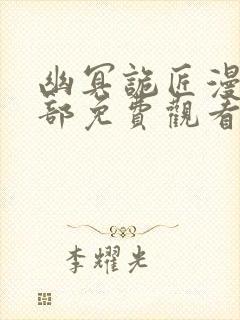 幽冥詭匠漫
部免費觀看
李耀光